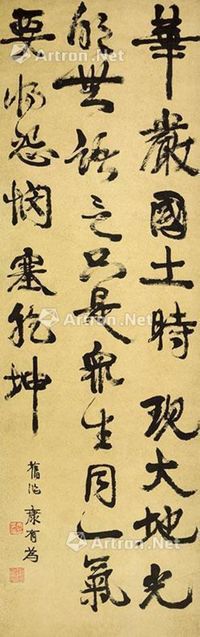 華嚴國土時現大地光
明無語言只是眾生同一氣
要將悲憫塞乾坤
舊作 康有為
Artron.Net
Artron.Net
Artron.Net